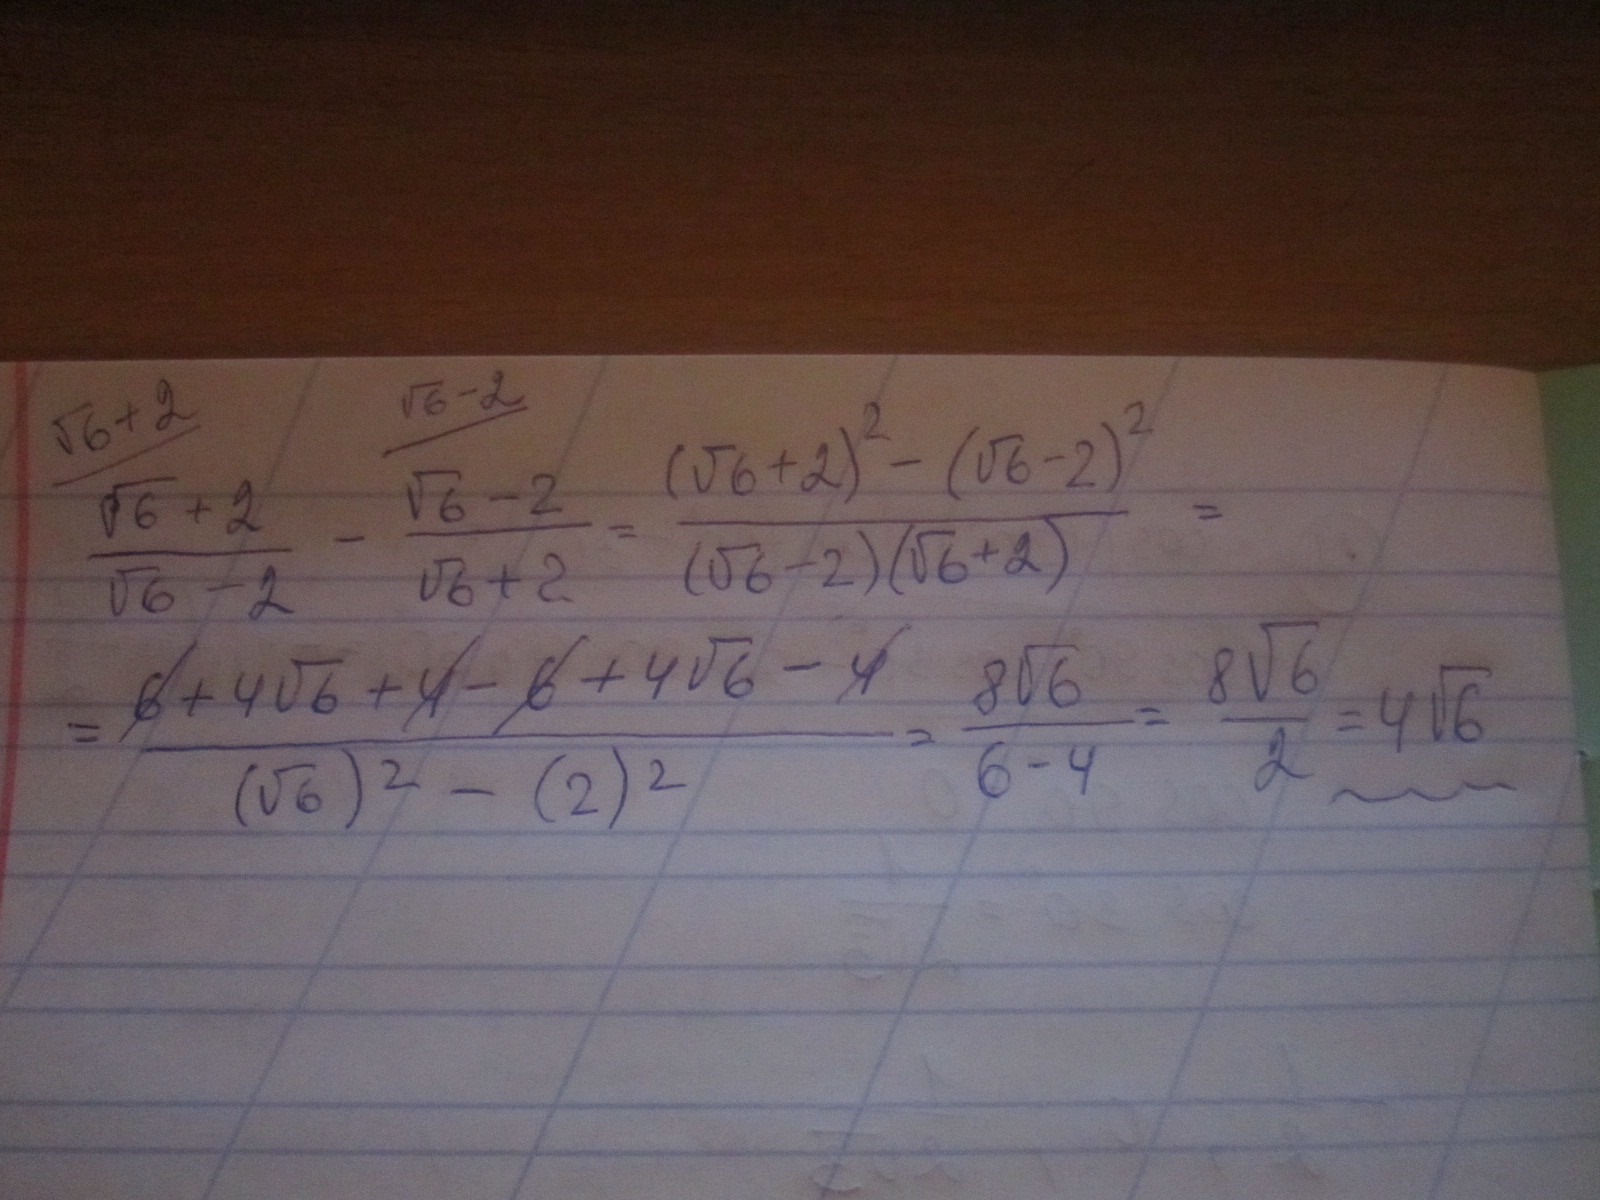 √6+2/ √6-2/
(√6+2)/(√6-2) - (√6-2)/(√6+2) = ((√6+2)² - (√6-2)²)/((√6-2)(√6+2)) =
= (6+4√6+4-6+4√6-4)/((√6)² - (2)²) = 8√6/(6-4) = 8√6/2 = 4√6